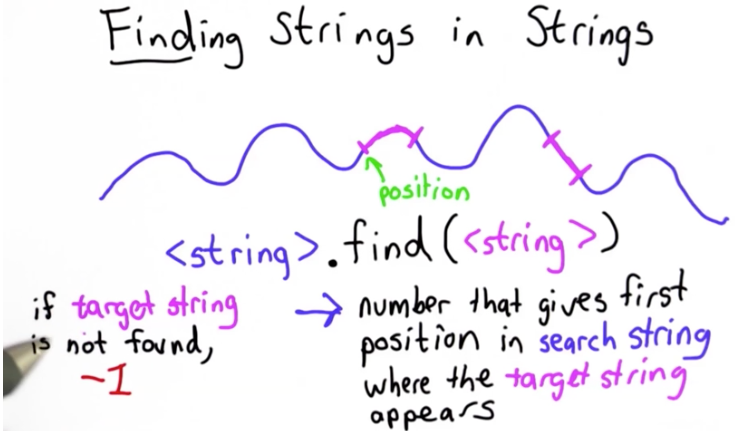 Finding Strings in Strings
position
<string>.find(<string>)
if target string
is not found,
-1
→ number that gives first
position in search string
where the target string
appears